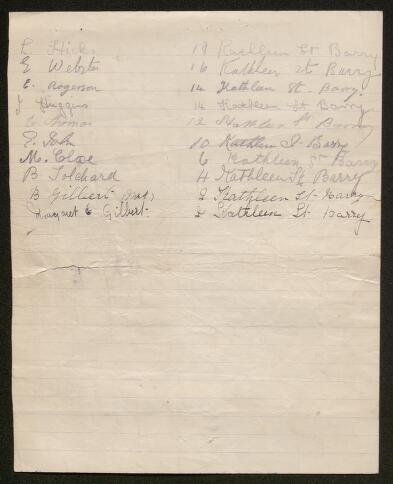 L Hicks 18 Kathleen St Barry
E Webster 16 Kathleen St Barry
E. Rogerson 14 Kathleen St. Barry.
J Huggins 14 Kathleen St Barry
E Thomas 12 Kathleen St Barry
E. John 10 Kathleen St Barry
M. Cloe 6 Kathleen St Barry
B Tolchard 4 Kathleen St Barry
B Gilbert 2 Kathleen St. Barry
Margaret E Gilbert. 2 Kathleen St. Barry